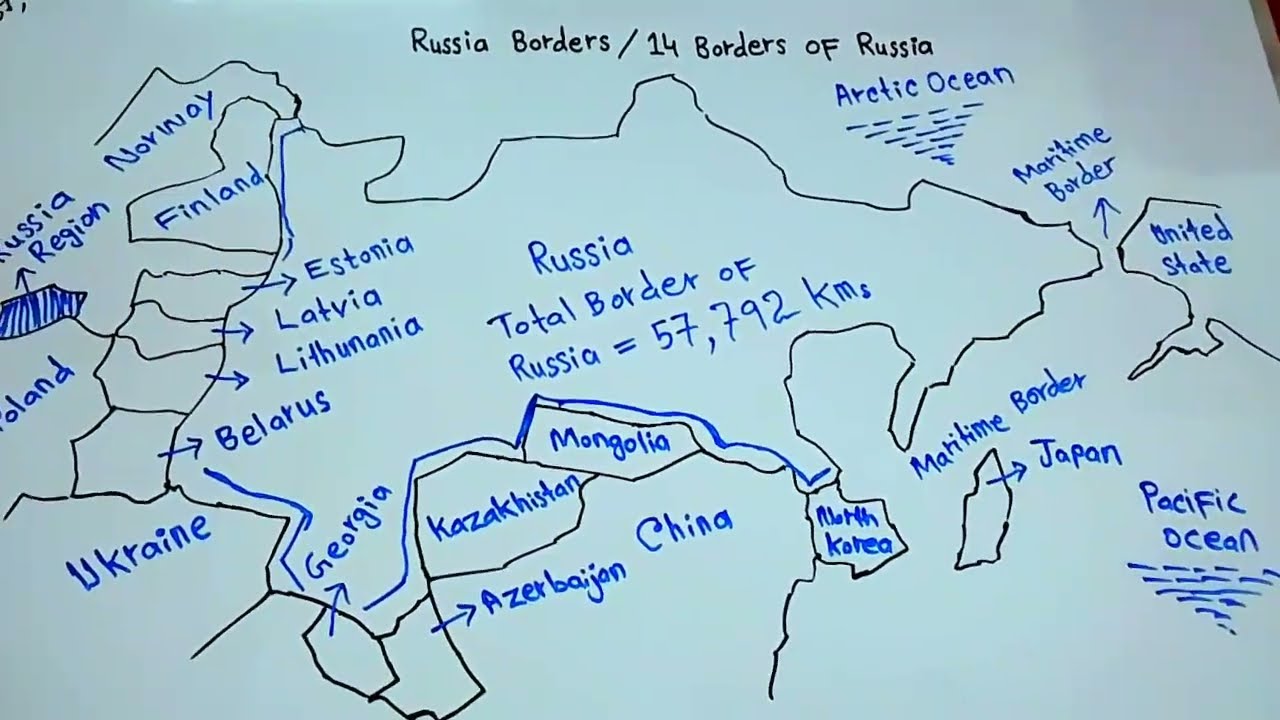 Russia Borders / 14 Borders of Russia
Arctic Ocean
Norway
Finland
Region
Maritime
Border
United
State
Estonia
Latvia
Lithunania
Belarus
Russia
Total Border of
Russia = 57,792 Kms
Mongolia
Kazakhstan
China
Georgia
Ukraine
Azerbaijan
North
Korea
Maritime Border
Japan
Pacific
Ocean